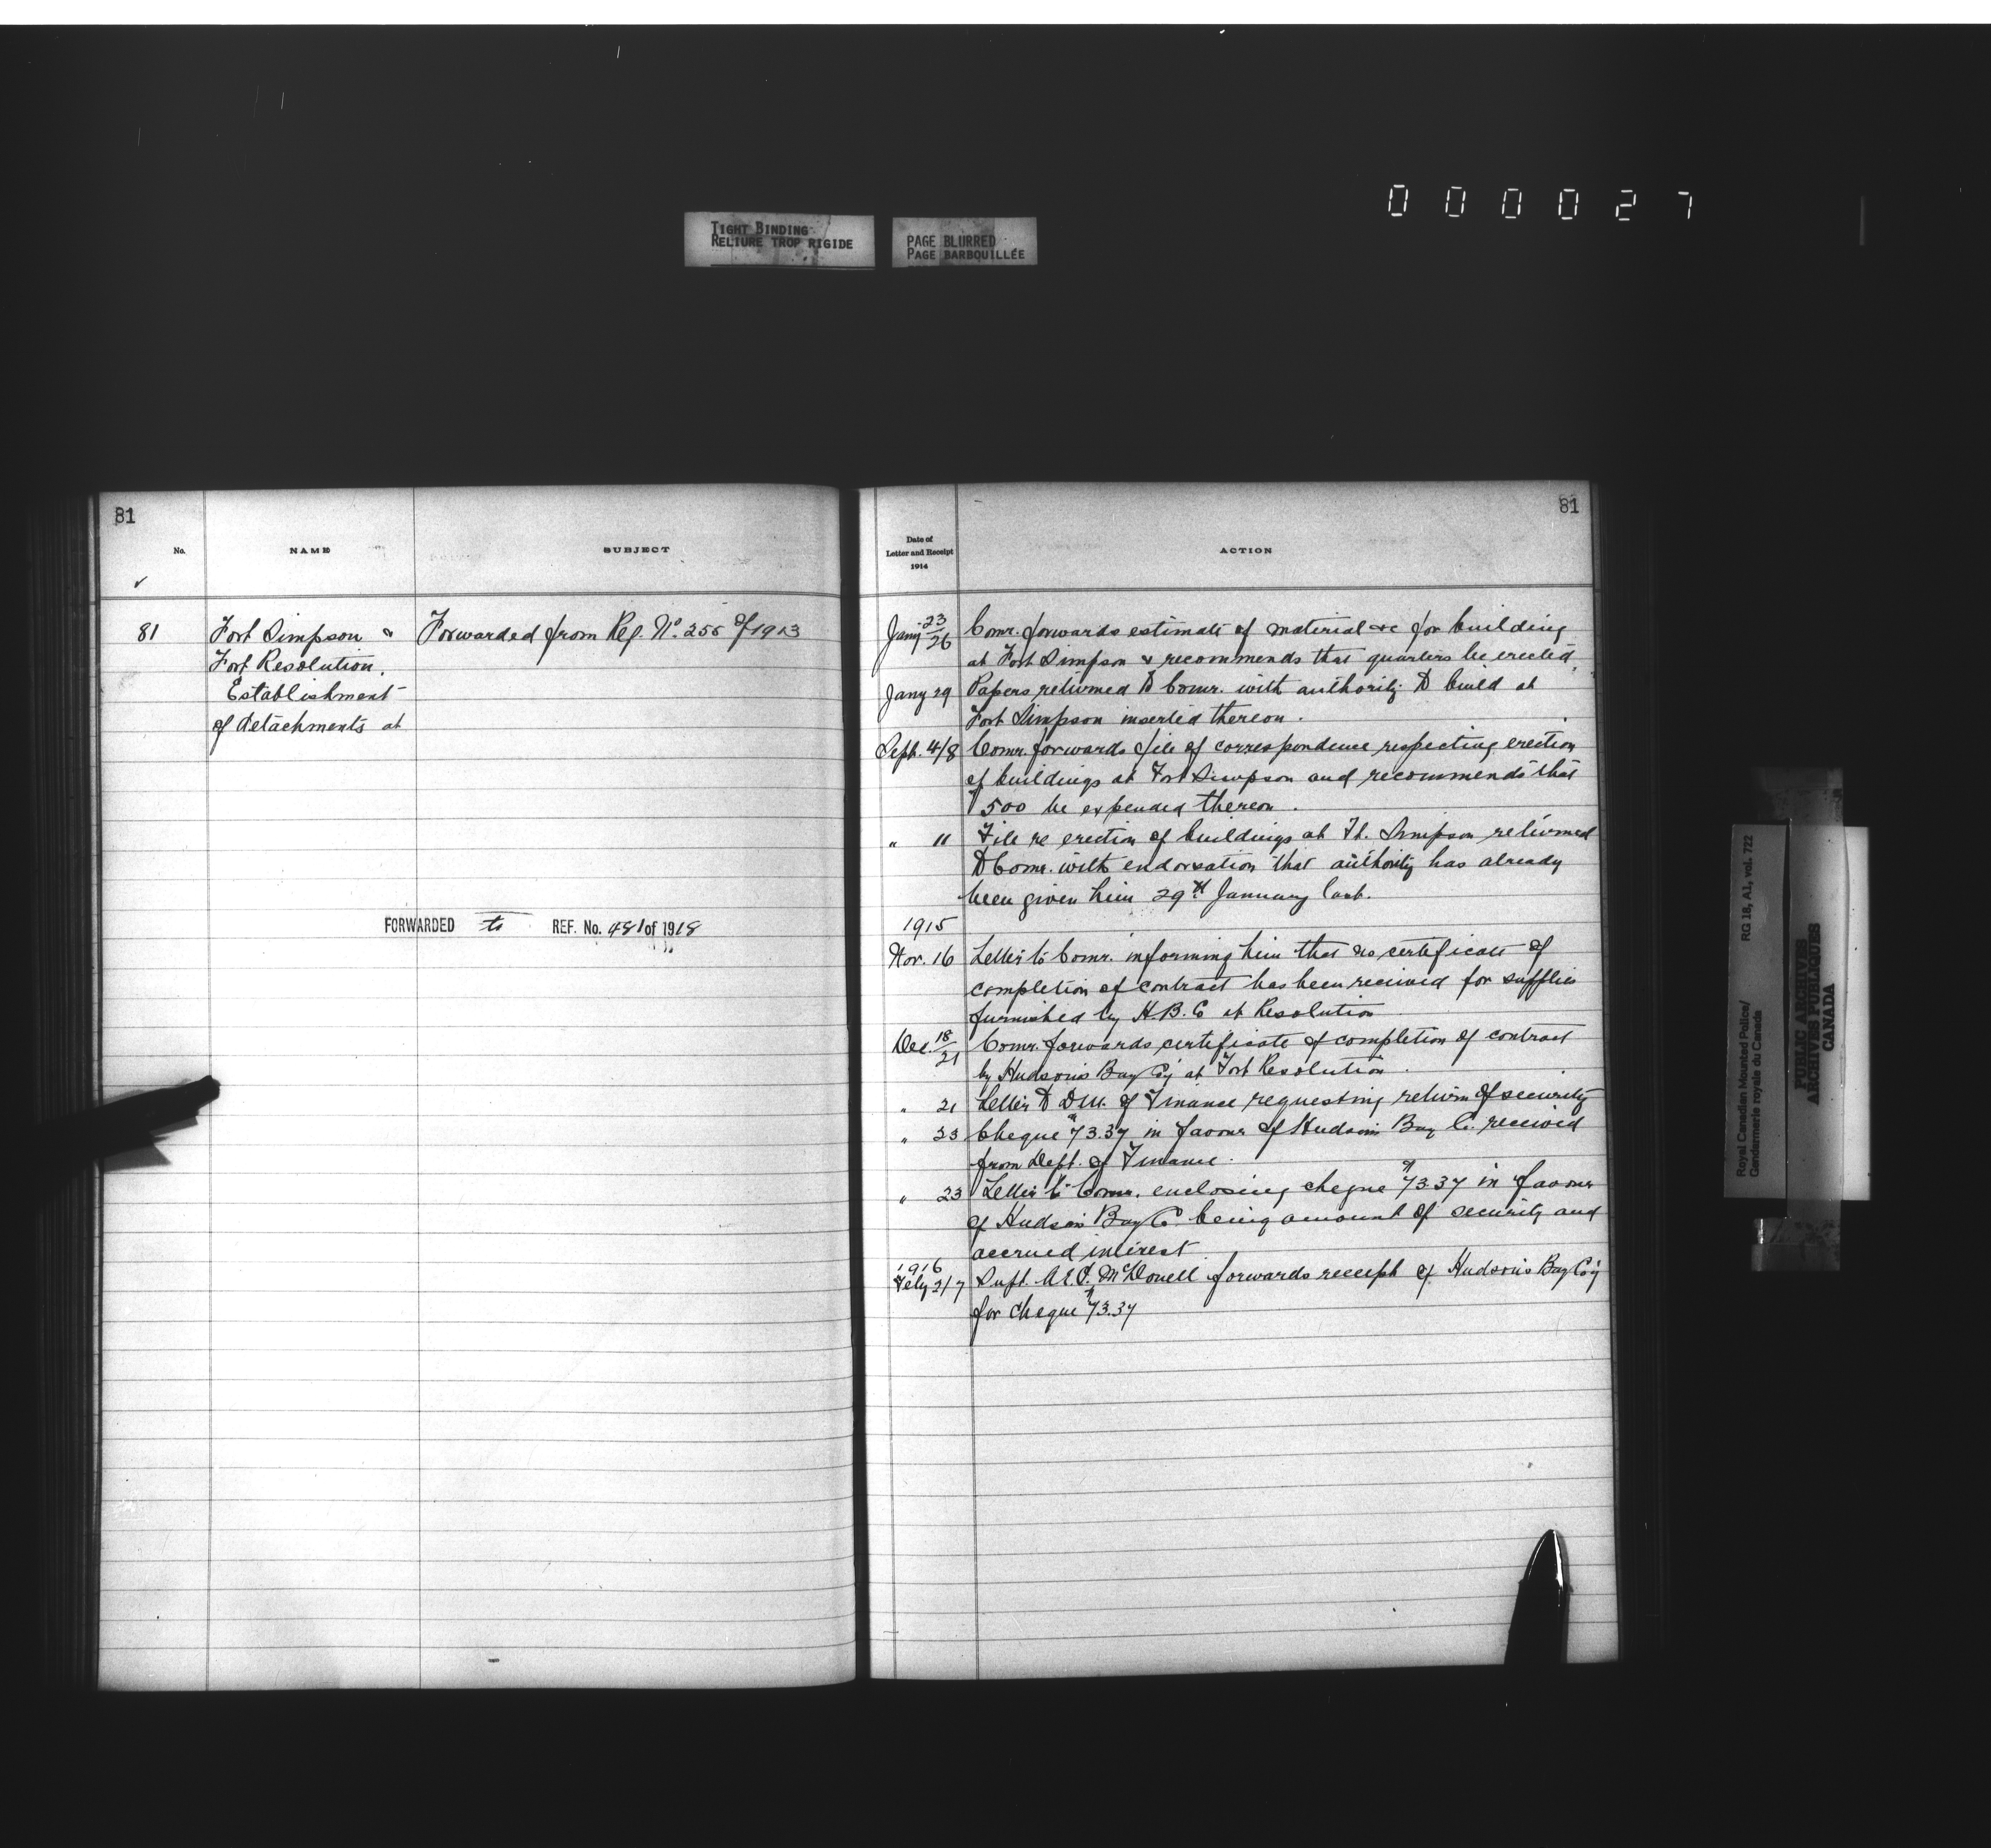 0 0 0 0 2 7
TIGHT BINDING
RELIURE TROP RIGIDE
PAGE BLURRED
PAGE BARBOUILLÉE
81
No.
NAME
SUBJECT
✓
81
Fort Simpson &
Fort Resolution,
Establishment
of detachments at
Forwarded from Ref. No. 255 of 1913
FORWARDED to REF. No. 481 of 1918
81
Date of
Letter and Receipt
1914
ACTION
Jany 23/26 Comr. forwards estimate of material &c for building
at Fort Simpson & recommends that quarters be erected.
Jany 29 Papers returned to Comr. with authority to build at
Fort Simpson inserted thereon.
Sept. 4/8 Comr. forwards file of correspondence respecting erection
of buildings at Fort Simpson and recommends that
$500 be expended thereon.
" 11 File re erection of buildings at Ft. Simpson returned
to Comr. with endorsation that authority has already
been given him 29th January last.
1915
Nov. 16 Letter to Comr. informing him that no certificate of
completion of contract has been received for supplies
furnished by H.B.C at Resolution
Dec. 18/21 Comr. forwards certificate of completion of contract
by Hudson's Bay Coy at Fort Resolution.
" 21 Letter to D.M. of Finance requesting return of security
" 23 Cheque $73.37 in favour of Hudson's Bay Co. received
from Dept. of Finance.
" 23 Letter to Comr. enclosing cheque $73.37 in favour
of Hudson's Bay Co. being amount of security and
accrued interest.
1916
Feby 2/7 Supt. McDonell forwards receipt of Hudson's Bay Coy
for cheque $73.37
Royal Canadian Mounted Police/
Gendarmerie royale du Canada
RG 18, A1, vol. 722
PUBLIC ARCHIVES
ARCHIVES PUBLIQUES
CANADA